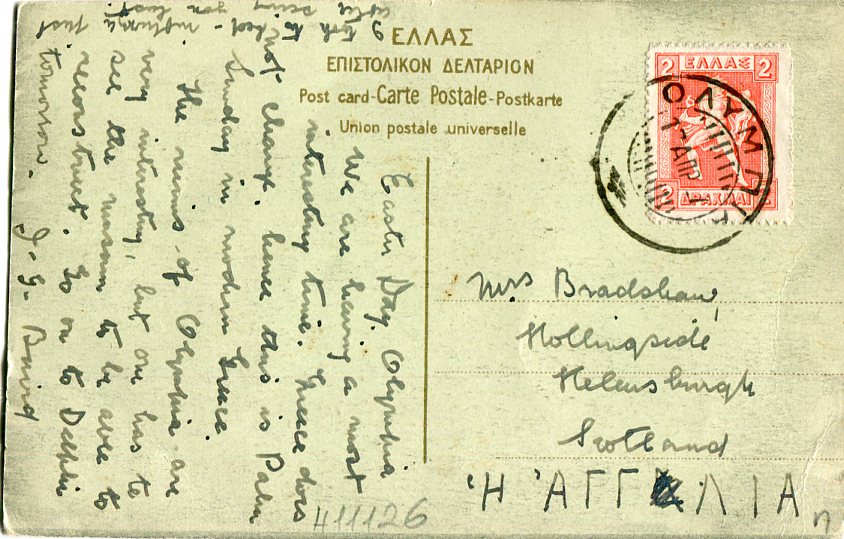 ΕΛΛΑΣ
ΕΠΙΣΤΟΛΙΚΟΝ ΔΕΛΤΑΡΙΟΝ
Post card-Carte Postale-Postkarte
Union postale universelle
2 ΕΛΛΑΣ 2
2 ΔΡΑΧΜΑΙ 2
ΟΛΥΜΠΙΑ
Easter Day. Olympia
We are having a most
interesting time. Greece does
not change, hence this is Palm
Sunday in modern Greece.
The ruins of Olympia are
very interesting, but one has to
see the museum to be able to
reconstruct. Go on to Delphi
tomorrow.
J. G. Baird
to bed - just
after seeing you last.
Mrs Bradshaw,
Hollingside
Helensburgh
Scotland
Ἡ ἈΓΓΛΙΑ
411126